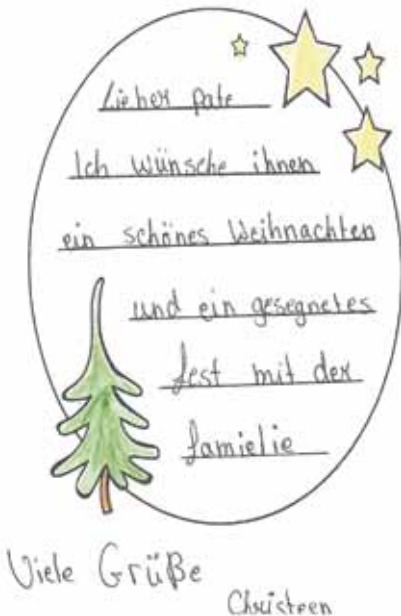 Lieber pate
Ich wünsche ihnen
ein schönes Weihnachten
und ein gesegnetes
fest mit der
famielie
Viele Grüße
Christeen